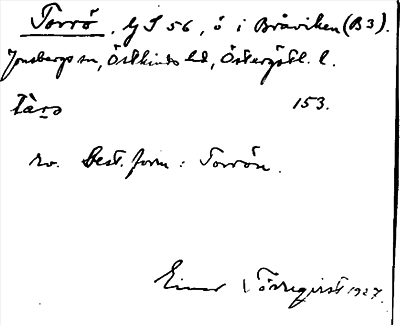 Torrö, GS 56, ö i Bråviken (B3).
Jonsbergs sn, Östkinds hd, Östergötl. l.
Tårö 153.
rv. Best. form: Torrön.
Einar Törnqvist 1927.